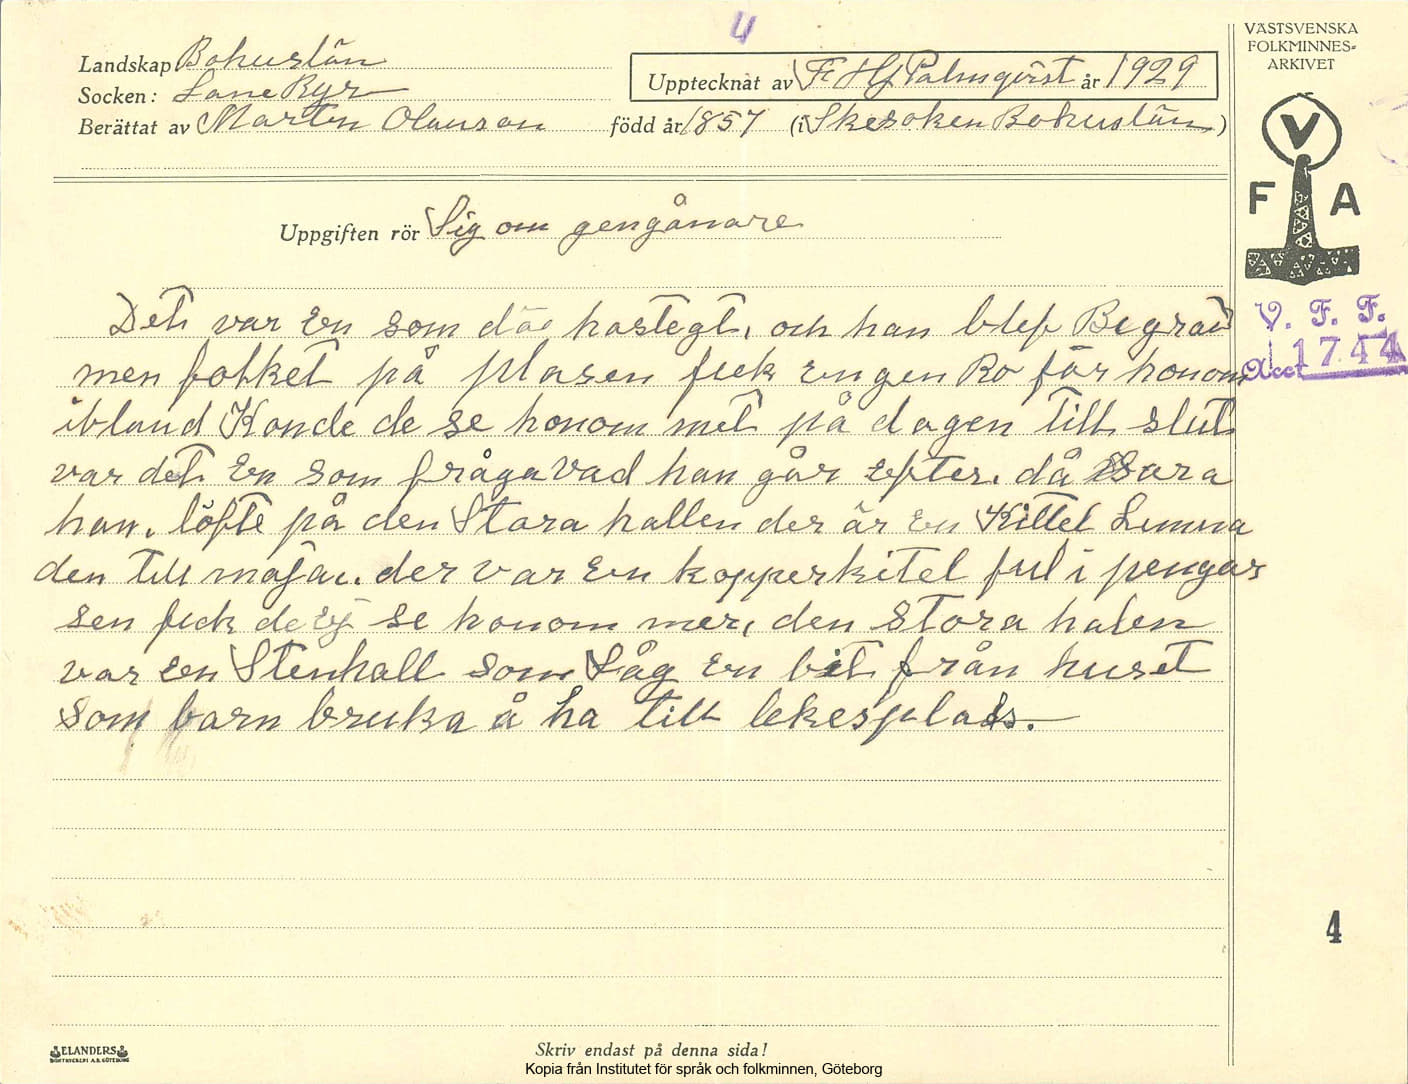 4
VÄSTSVENSKA
FOLKMINNES-
ARKIVET
Landskap Bohuslän
Socken: Lane Ryr
Upptecknat av Fr Hj Palmqvist år 1929
Berättat av Marten Olauson född år 1857 (i Skesoken Bohuslän)
V
F A
Uppgiften rör Sig om gengånare
V. F. F.
Acc 1744
Det var En som döe hastegt, och han blef Begrav
men folket på plasen fick Engen Ro før honom
ibland Konde de se honom met på dagen till slut
var det En som fråga Vad han går efter. då Sara
han. löfte på den Stora hallen der är En Kittel Lemna
den till maja.. der var En kopperkitel ful i pengar
sen fick de Ej se honom mer, den stora halen
var En Stenhall som Låg En bit från huset
som barn bruka å ha till lekesplads.
4
ELANDERS
BOKTRYCKERI A.B. GÖTEBORG
Skriv endast på denna sida!
Kopia från Institutet för språk och folkminnen, Göteborg